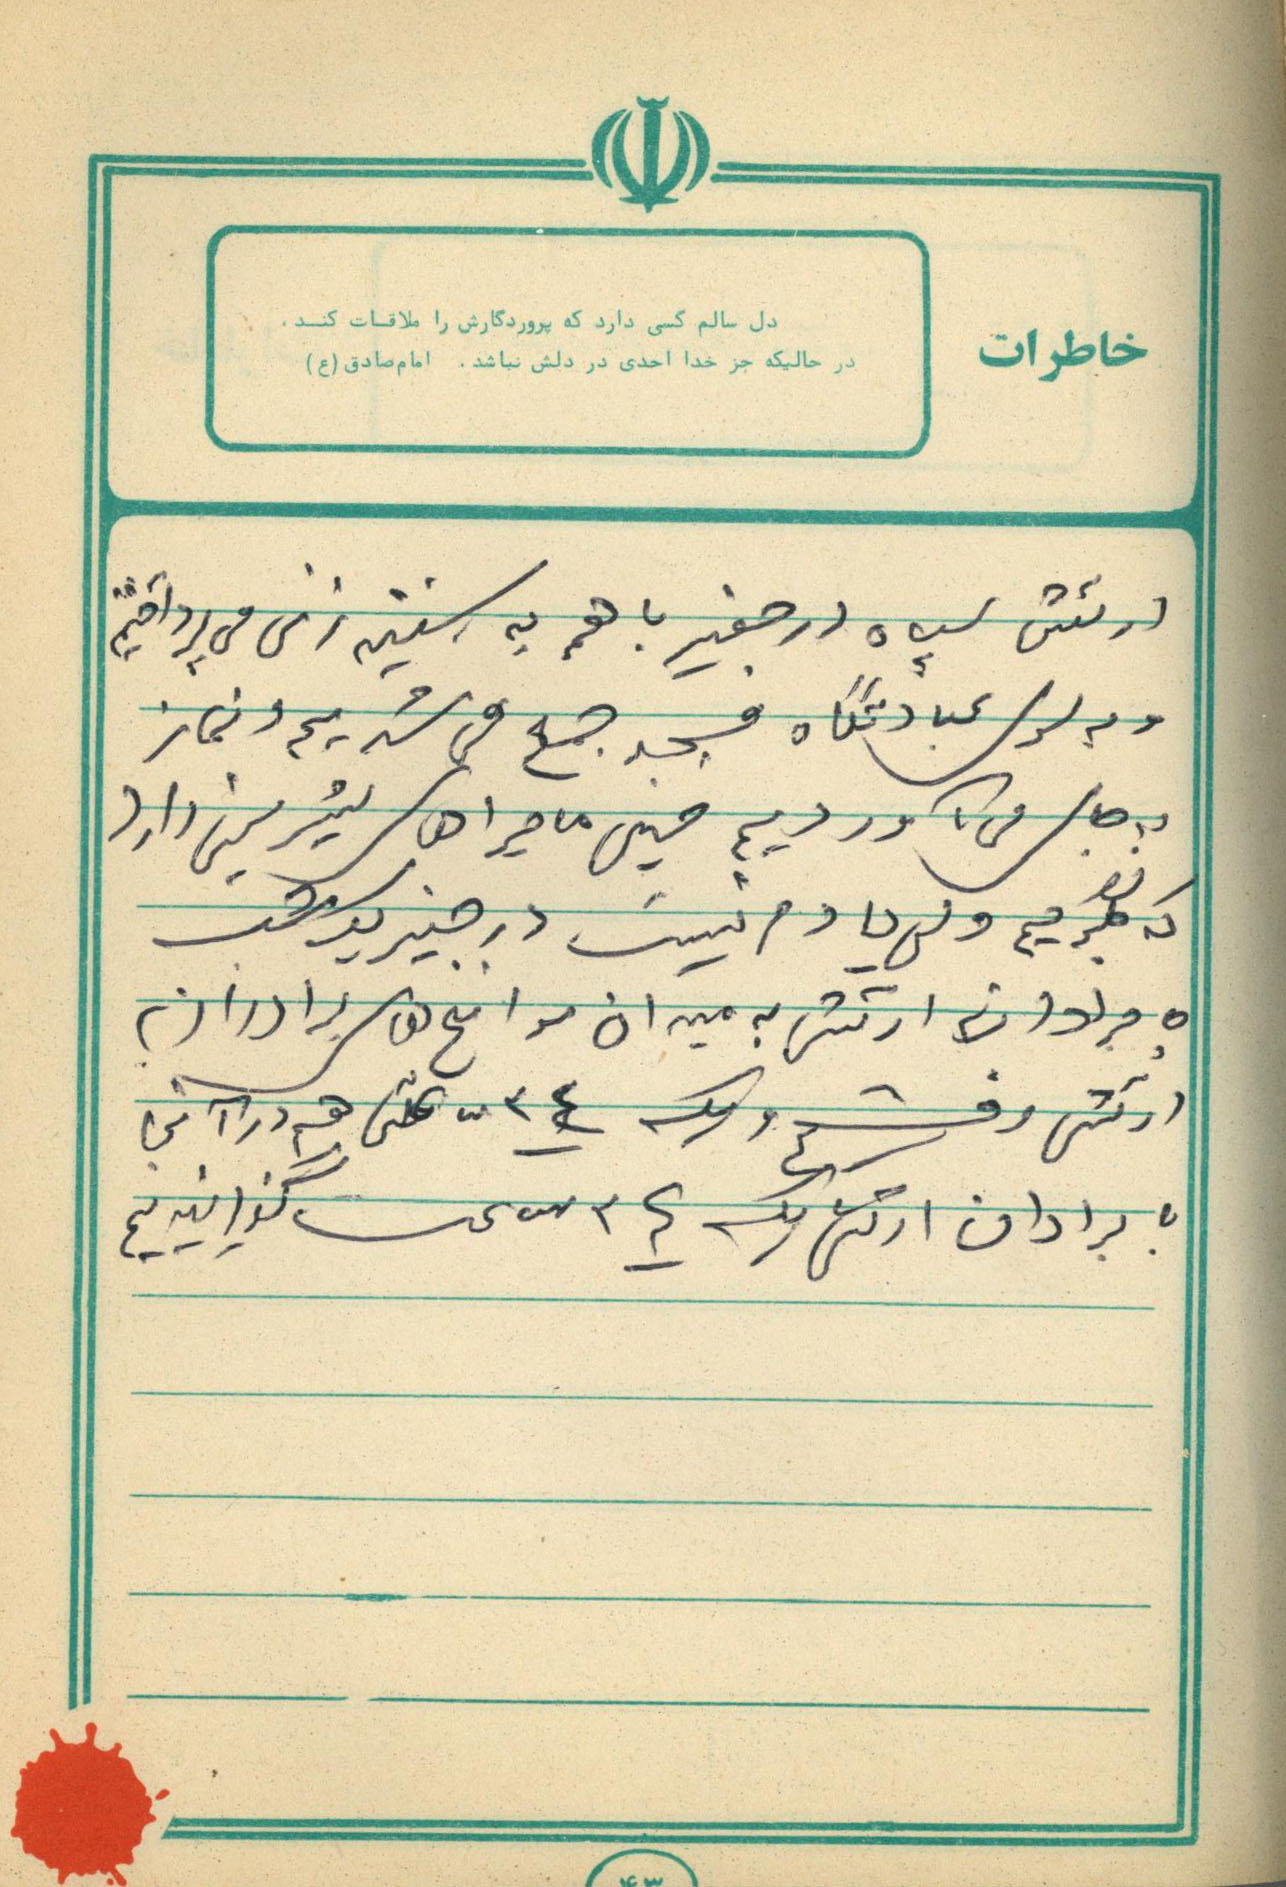 خاطرات
دل سالم کسی دارد که پروردگارش را ملاقات کند.
در حالیکه جز خدا احدی در دلش نباشد. امام صادق (ع)
ارتش سپاه در جفیر با هم به سینه زنی می پرداختیم
و به سوی عبادتگاه مسجد جمع می شدیم و نماز
به جای می آوردیم خیلی ماجراهای شیرینی دارد
که ولی یادم نیست در جفیر یک شب
برادران ارتش به میدان موانع های برادران
ارتش رفتیم و یک هم در آنجا
با برادان ارتش یک گذراندیم
۴۳